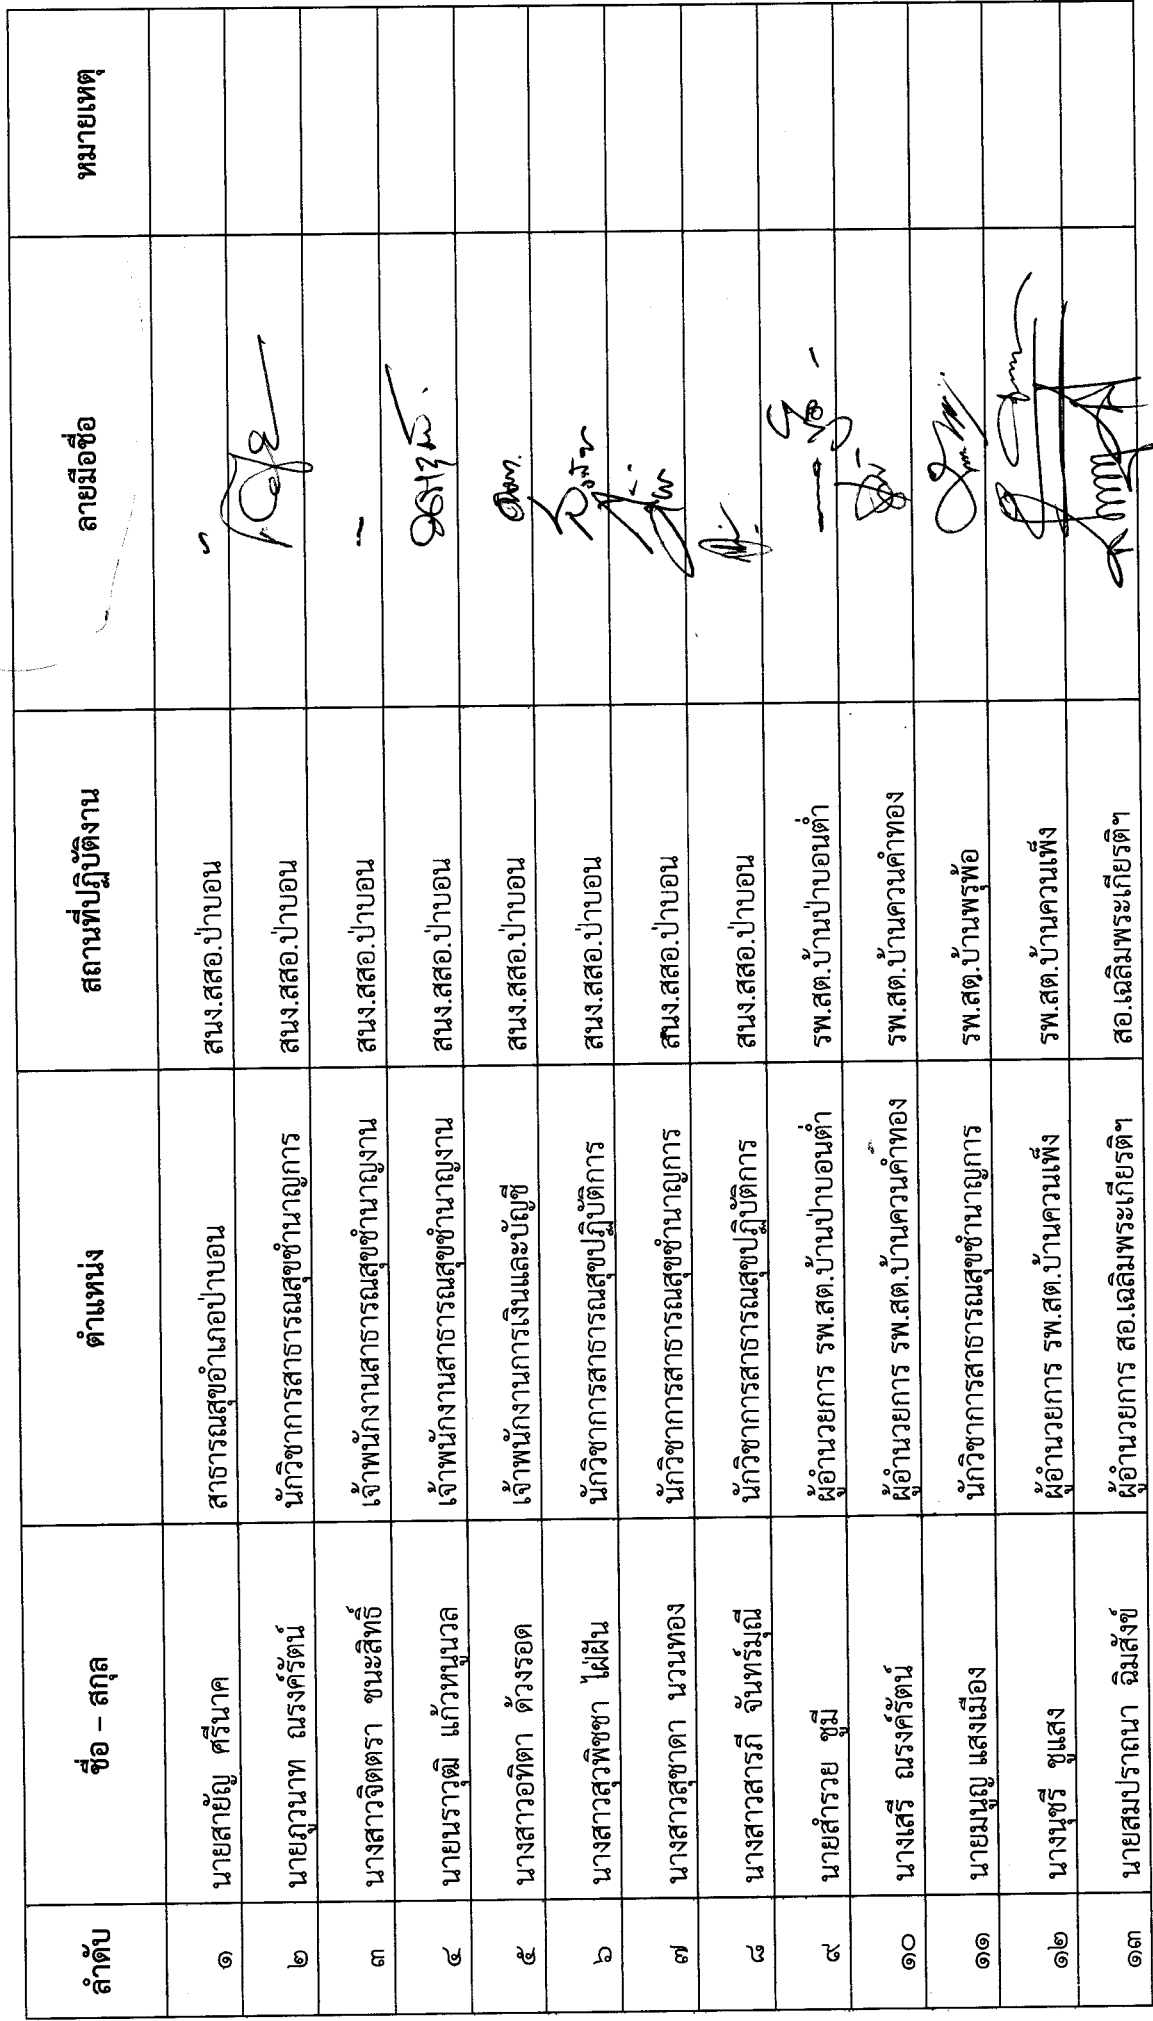 ลำดับ ชื่อ – สกุล ตำแหน่ง สถานที่ปฏิบัติงาน ลายมือชื่อ หมายเหตุ
๑ นายสายัญ ศรีนาค สาธารณสุขอำเภอป่าบอน สนง.สสอ.ป่าบอน
๒ นายภูวนาท ณรงค์รัตน์ นักวิชาการสาธารณสุขชำนาญการ สนง.สสอ.ป่าบอน
๓ นางสาวจิตตรา ชนะสิทธิ์ เจ้าพนักงานสาธารณสุขชำนาญงาน สนง.สสอ.ป่าบอน
๔ นายนราวุฒิ แก้วหนูนวล เจ้าพนักงานสาธารณสุขชำนาญงาน สนง.สสอ.ป่าบอน
๕ นางสาวอทิตา ด้วงรอด เจ้าพนักงานการเงินและบัญชี สนง.สสอ.ป่าบอน
๖ นางสาวสุวพิชชา ไฝ่ฝัน นักวิชาการสาธารณสุขปฏิบัติการ สนง.สสอ.ป่าบอน
๗ นางสาวสุชาดา นวนทอง นักวิชาการสาธารณสุขชำนาญการ สนง.สสอ.ป่าบอน
๘ นางสาวสารภี จันทร์มุณี นักวิชาการสาธารณสุขปฏิบัติการ สนง.สสอ.ป่าบอน
๙ นายสำรวย ชูมี ผู้อำนวยการ รพ.สต.บ้านป่าบอนต่ำ รพ.สต.บ้านป่าบอนต่ำ
๑๐ นางเสรี ณรงค์รัตน์ ผู้อำนวยการ รพ.สต.บ้านควนคำทอง รพ.สต.บ้านควนคำทอง
๑๑ นายมนูญ แสงเมือง นักวิชาการสาธารณสุขชำนาญการ รพ.สต.บ้านพรุพ้อ
๑๒ นางนุชรี ชูแสง ผู้อำนวยการ รพ.สต.บ้านควนเพ็ง รพ.สต.บ้านควนเพ็ง
๑๓ นายสมปราถนา ฉิมสังข์ ผู้อำนวยการ สอ.เฉลิมพระเกียรติฯ สอ.เฉลิมพระเกียรติฯ